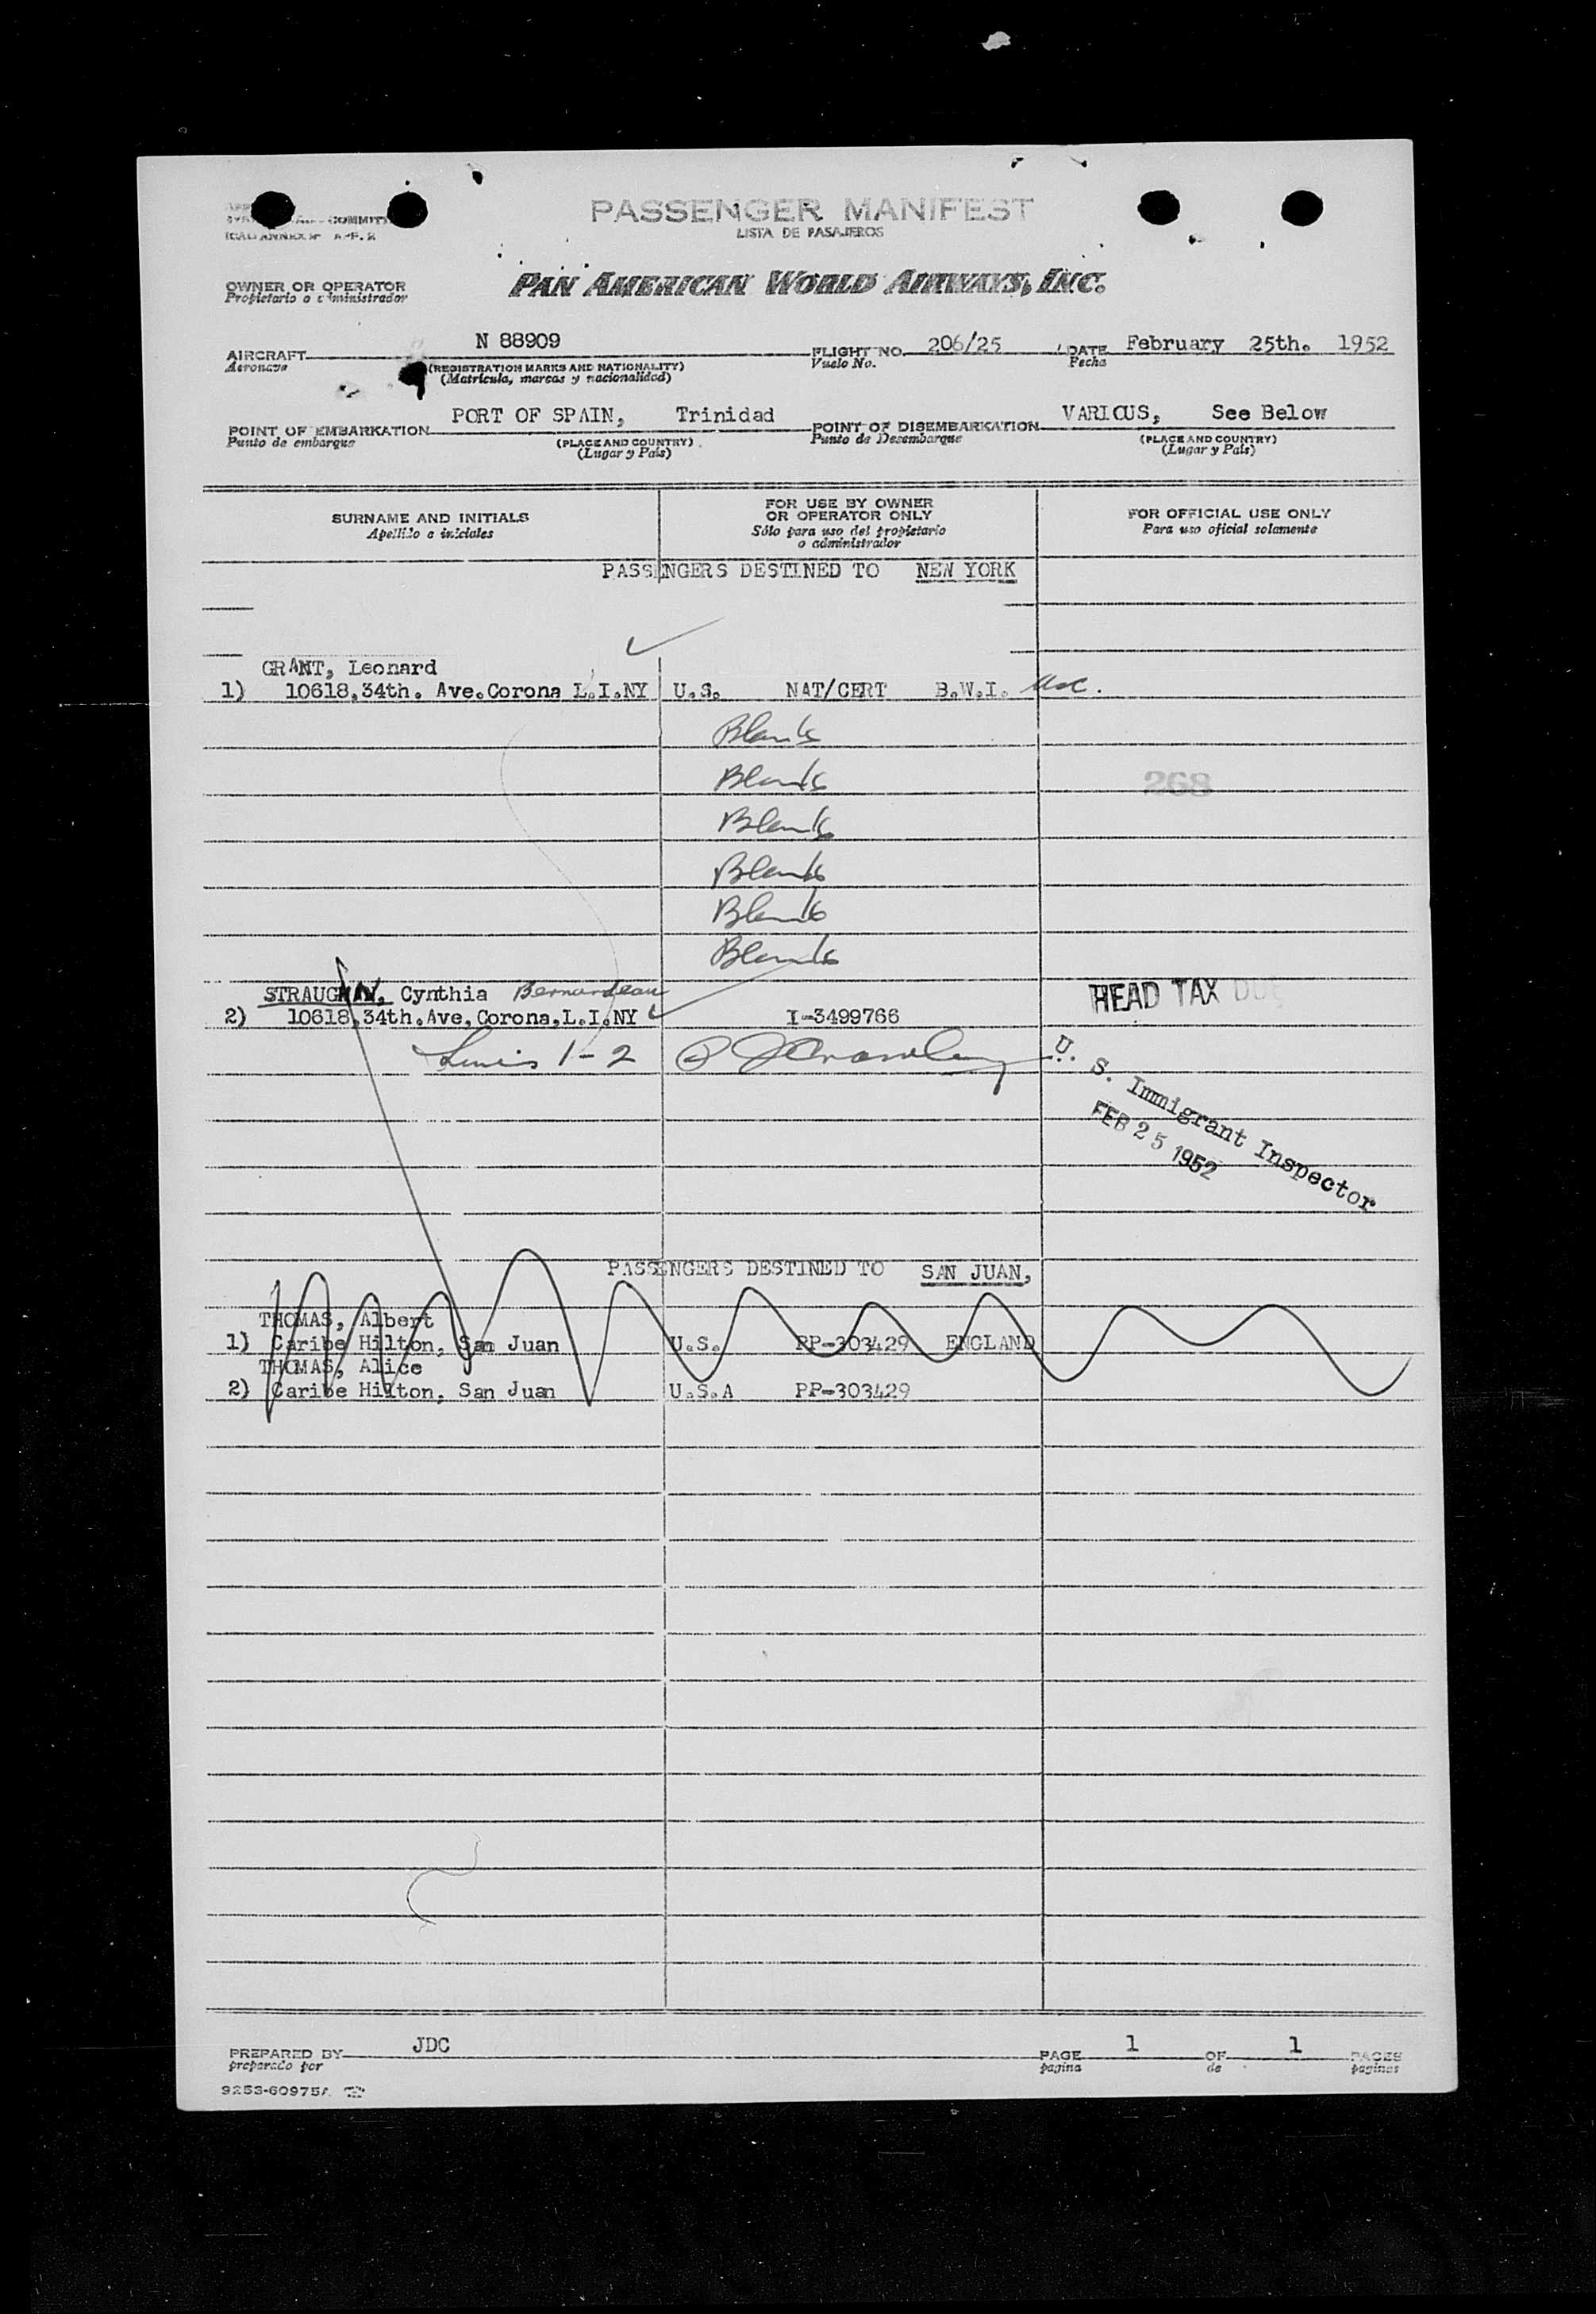 PASSENGER MANIFEST
COMMITT
LISTA DE PASAJEROS
OWNER OR OPERATOR
Propietario o administrador
PAN AMERICAN WORLD AIRWAYS, INC.
AIRCRAFT N 88909 FLIGHT NO. 206/25 DATE February 25th. 1952
Aeronave (REGISTRATION MARKS AND NATIONALITY) Vuelo No. Fecha
(Matrícula, marcas y nacionalidad)
POINT OF EMBARKATION PORT OF SPAIN, Trinidad POINT OF DISEMBARKATION VARIOUS, See Below
Punto de embarque (PLACE AND COUNTRY) Punto de Desembarque (PLACE AND COUNTRY)
(Lugar y País) (Lugar y País)
SURNAME AND INITIALS FOR USE BY OWNER OR OPERATOR ONLY FOR OFFICIAL USE ONLY
Apellido e iniciales Sólo para uso del propietario o administrador Para uso oficial solamente
PASSENGERS DESTINED TO NEW YORK
GRANT, Leonard
1) 10618,34th. Ave.Corona L.I.NY U.S. NAT/CERT B.W.I. usc.
Blank
Blank
268
Blank
Blank
Blank
Blank
STRAUGHAN, Cynthia Bernardeau HEAD TAX DUE
2) 10618,34th.Ave,Corona,L.I.NY I-3499766
1-2
U. S. Immigrant Inspector
FEB 25 1952
PASSENGERS DESTINED TO SAN JUAN,
THOMAS, Albert
1) Caribe Hilton, San Juan U.S. PP-303429 ENGLAND
THOMAS, Alice
2) Caribe Hilton, San Juan U.S.A PP-303429
PREPARED BY JDC PAGE 1 OF 1 PAGES
preparado por pagina de paginas
9253-60975A